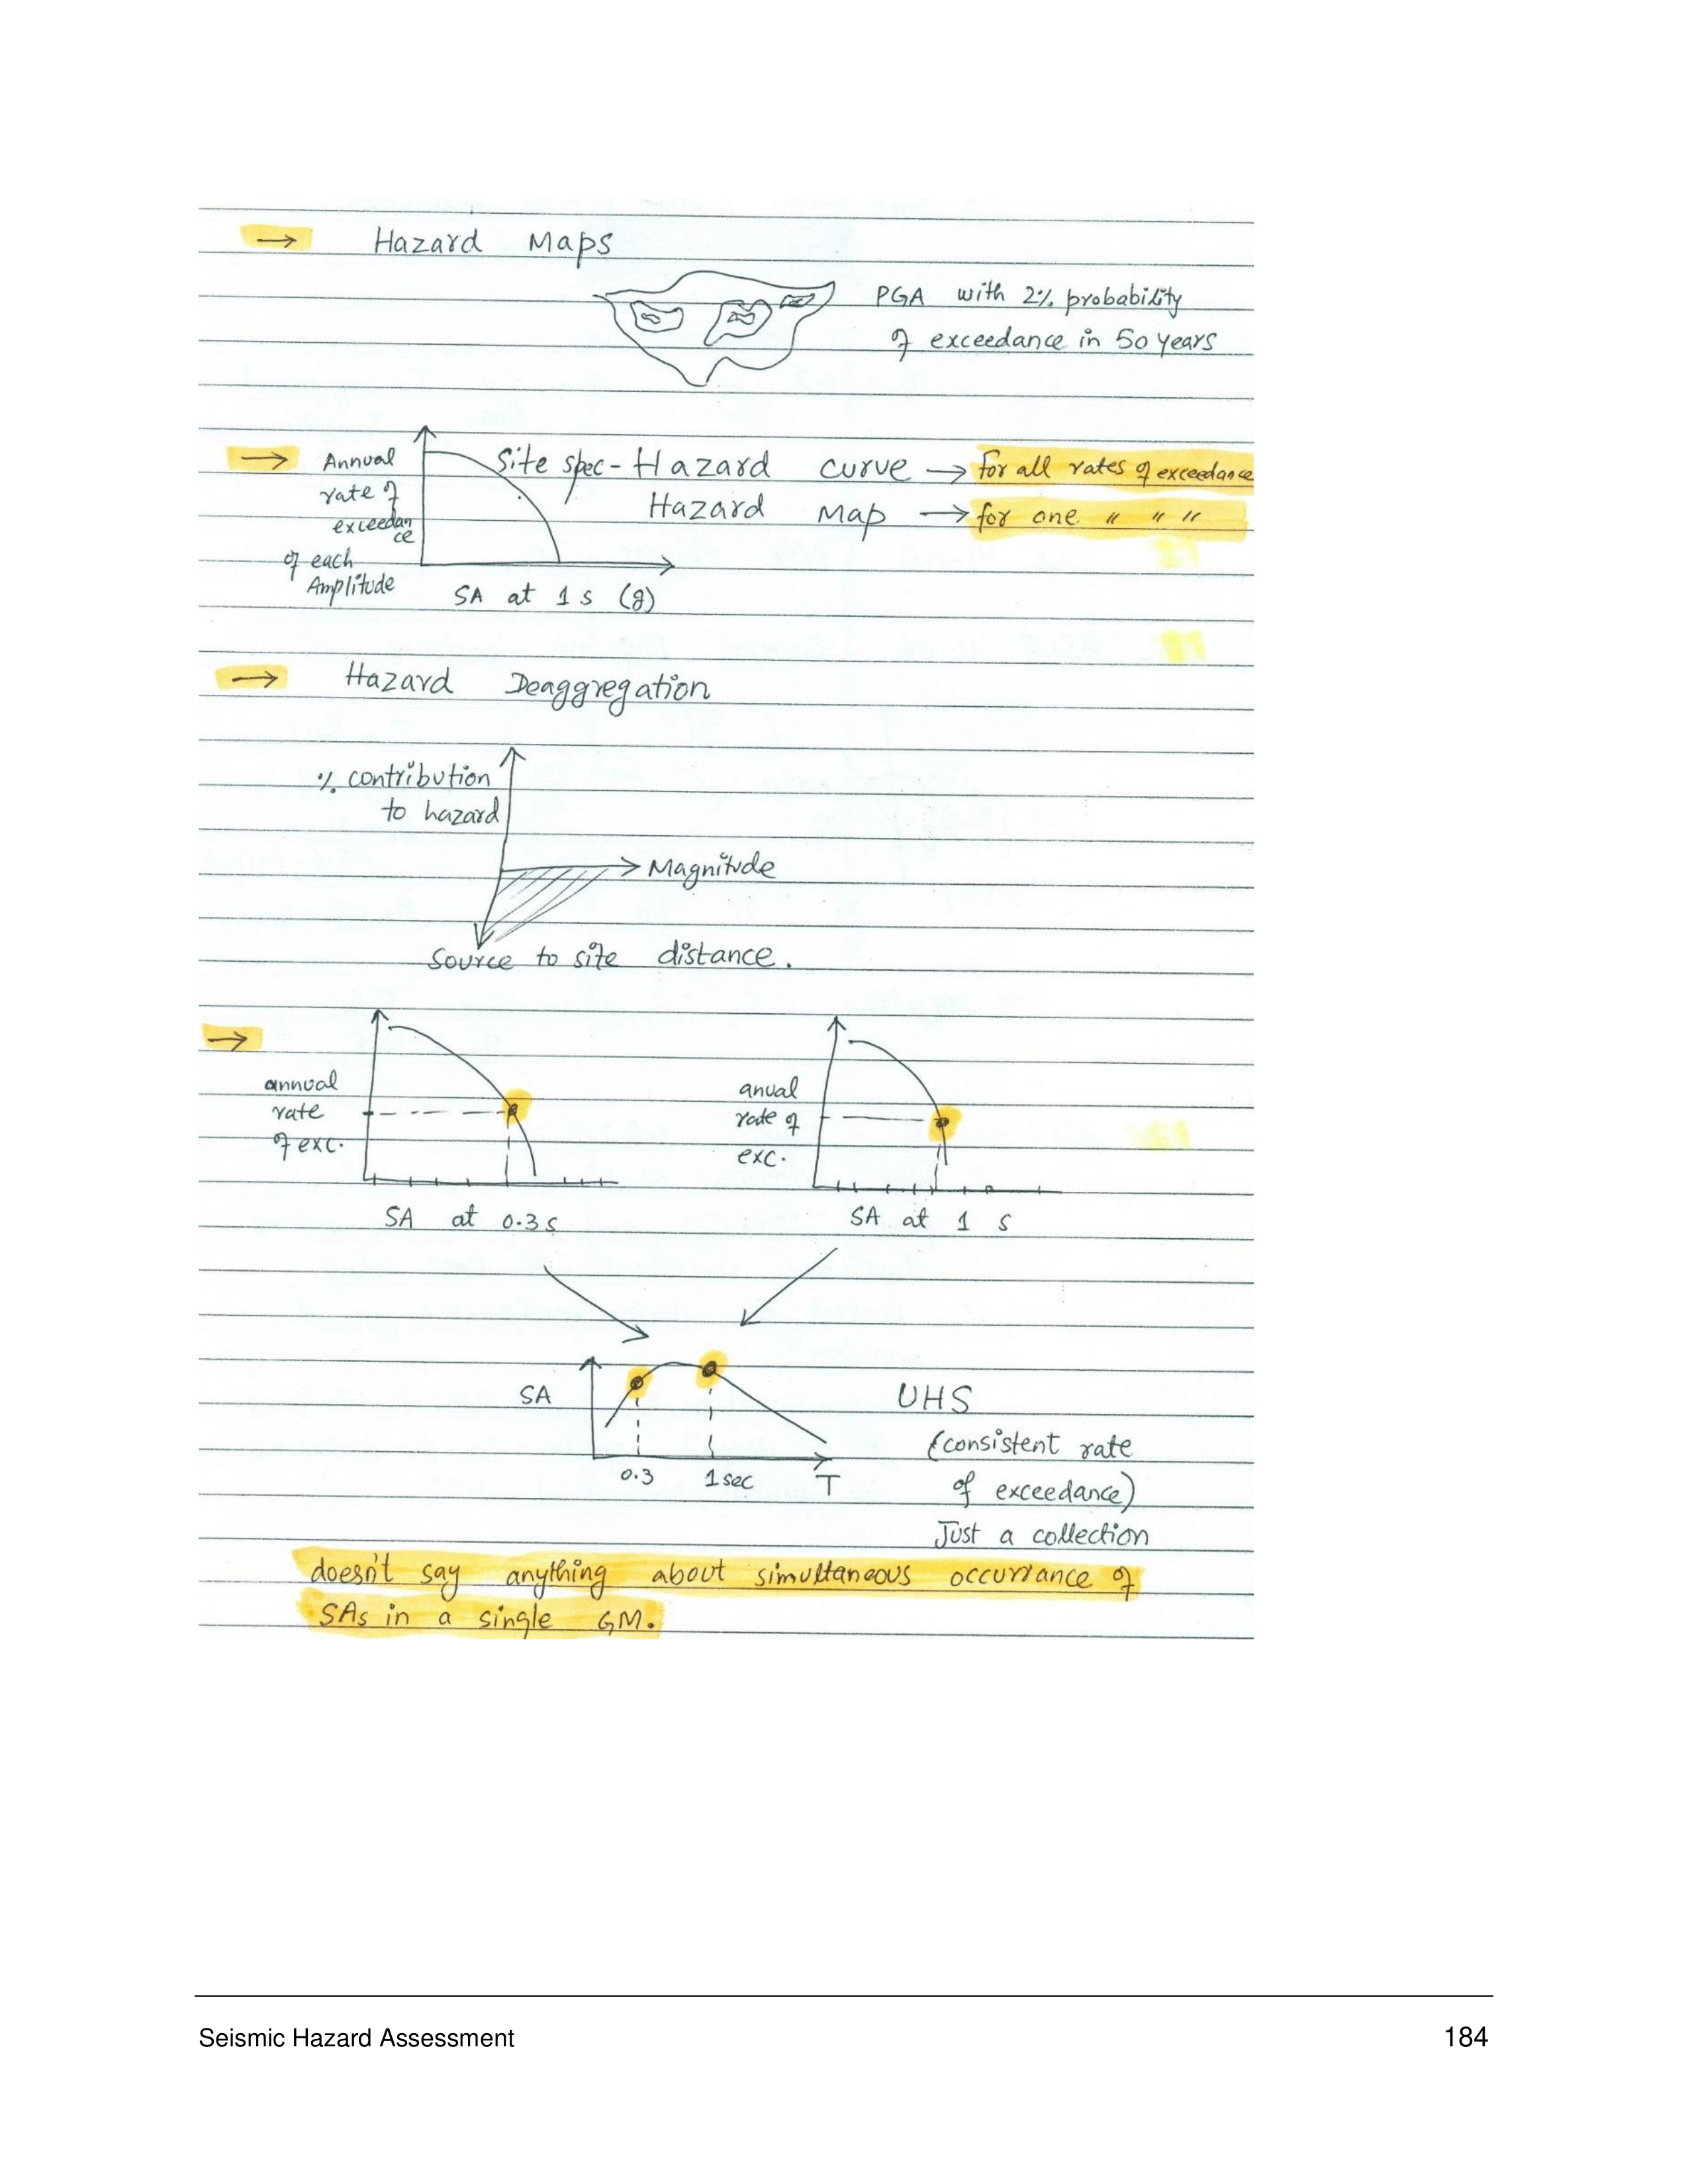 → Hazard Maps
PGA with 2% probability
of exceedance in 50 years
→ Annual
rate of
exceedan
ce
of each
Amplitude
SA at 1 s (g)
Site spec-Hazard curve → for all rates of exceedance
Hazard Map → for one " " "
→ Hazard Deaggregation
% contribution
to hazard
→ Magnitude
Source to site distance.
→
annual
rate
of exc.
SA at 0.3 s
anual
rate of
exc.
SA at 1 s
SA
0.3 1 sec T
UHS
(consistent rate
of exceedance)
Just a collection
doesn't say anything about simultaneous occurrance of
SAs in a single GM.
Seismic Hazard Assessment 184